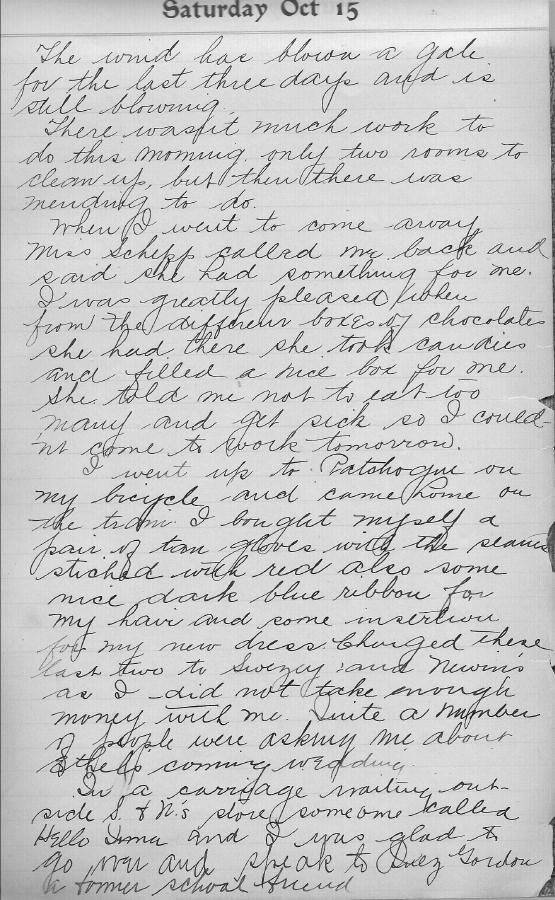 Saturday Oct 15
The wind has blown a gale
for the last three days and is
still blowing.
There wasn't much work to
do this morning. only two rooms to
clean up, but then there was
mending to do.
When I went to come away
Miss Schepp called me back and
said she had something for me.
I was greatly pleased when
from the different boxes of chocolates
she had there she took candies
and filled a nice box for me.
She told me not to eat too
many and get sick so I could-
n't come to work tomorrow.
I went up to Patchogue on
my bicycle and came home on
the train. I bought myself a
pair of tan gloves with the seams
stiched with red also some
nice dark blue ribbon for
my hair and some insertion
for my new dress. Charged these
last two to Swezey and Newin's
as I did not take enough
money with me. Quite a number
of people were asking me about
Ethel's coming wedding.
In a carriage waiting out-
side S. & N.'s store, someone called
Hello Irma and I was glad to
go over and speak to Inez Gordon
a former school friend